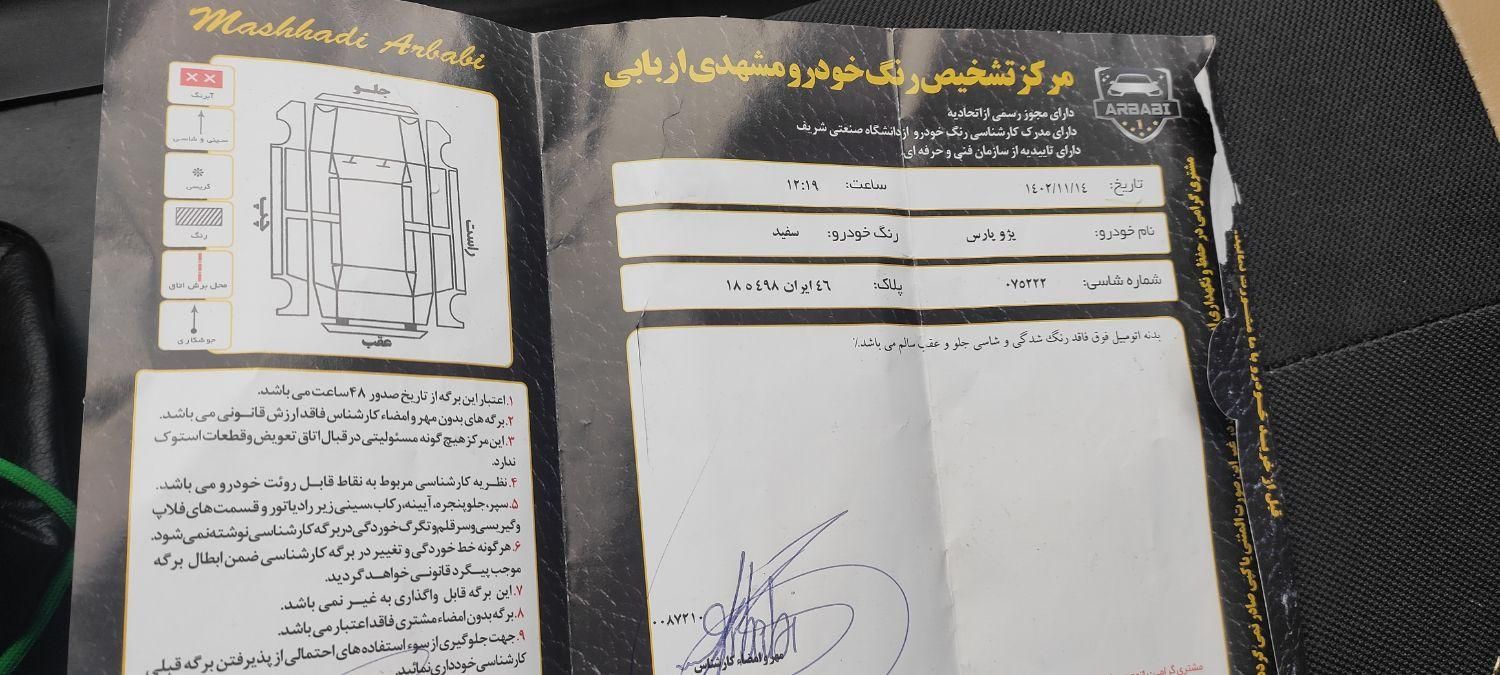 Mashhadi Arbabi
آبرنگ
سینی و شاسی
گریسی
رنگ
محل برش اتاق
جوشکاری
جلو
چپ
راست
عقب
۱.اعتبار این برگه از تاریخ صدور ۴۸ ساعت می باشد.
۲.برگه های بدون مهر و امضاء کارشناس فاقد ارزش قانونی می باشد.
۳.این مرکز هیچ گونه مسئولیتی در قبال اتاق تعویض و قطعات استوک
ندارد.
۴.نظریه کارشناسی مربوط به نقاط قابل روئت خودرو می باشد.
۵.سپر، جلوپنجره، آیینه، رکاب، سینی زیر رادیاتور و قسمت های فلاپ
و گیریسی و سر قلم و تگرگ خوردگی در برگه کارشناسی نوشته نمی شود.
۶.هرگونه خط خوردگی و تغییر در برگه کارشناسی ضمن ابطال برگه
موجب پیگرد قانونی خواهد گردید.
۷.این برگه قابل واگذاری به غیر نمی باشد.
۸.برگه بدون امضاء مشتری فاقد اعتبار می باشد.
۹.جهت جلوگیری از سوء استفاده های احتمالی از پذیرفتن برگه قبلی
کارشناسی خودداری نمائید.
مرکز تشخیص رنگ خودرو مشهدی اربابی
ARBABI
دارای مجوز رسمی از اتحادیه
دارای مدرک کارشناسی رنگ خودرو از دانشگاه صنعتی شریف
دارای تاییدیه از سازمان فنی و حرفه ای.
تاریخ: ۱۴۰۲/۱۱/۱۴ ساعت: ۱۲:۱۹
نام خودرو: پژو پارس رنگ خودرو: سفید
شماره شاسی: ۰۷۵۲۲۲ پلاک: ۴۶ ایران ۴۹۸ ه ۱۸
بدنه اتومبیل فوق فاقد رنگ شدگی و شاسی جلو و عقب سالم می باشد.٪
۰۰۸۷۲۱۰
مهر و امضاء کارشناس
مشتری گرامی
مشتری گرامی در حفظ و نگهداری